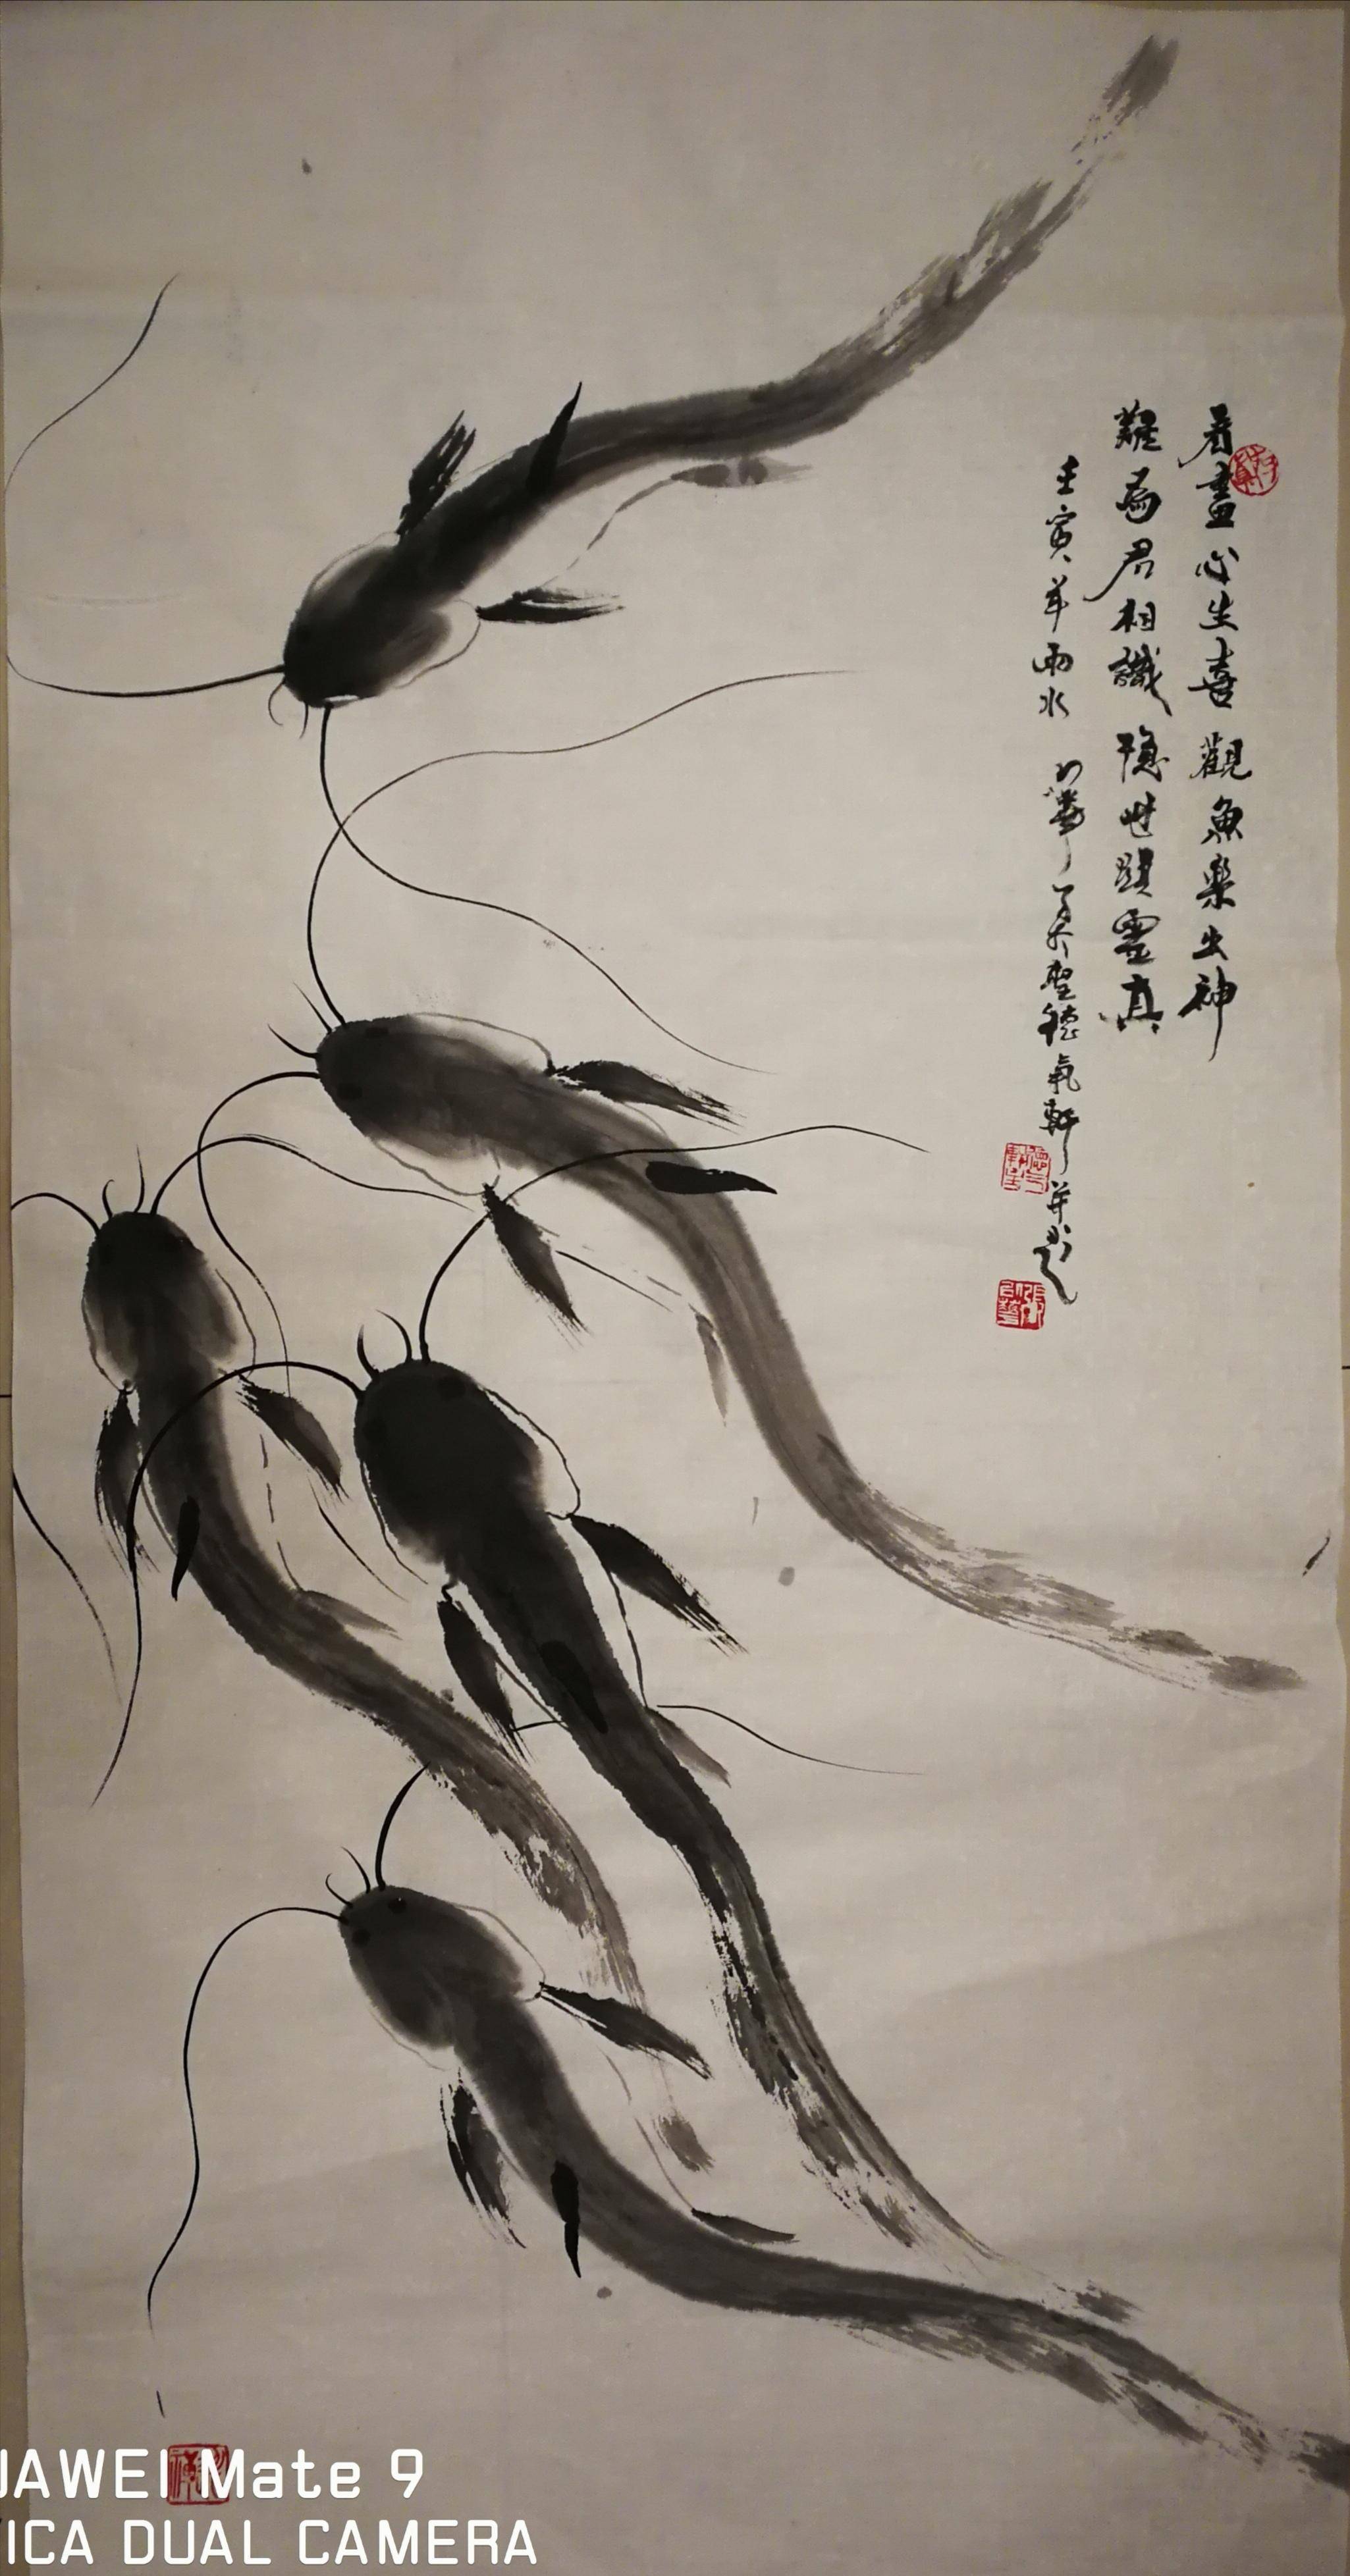 看畫心生喜觀魚樂出神
難為君相識隱世顯靈真
壬寅年雨水 聖德氣軒并題
UAWEI Mate 9
ICA DUAL CAMERA